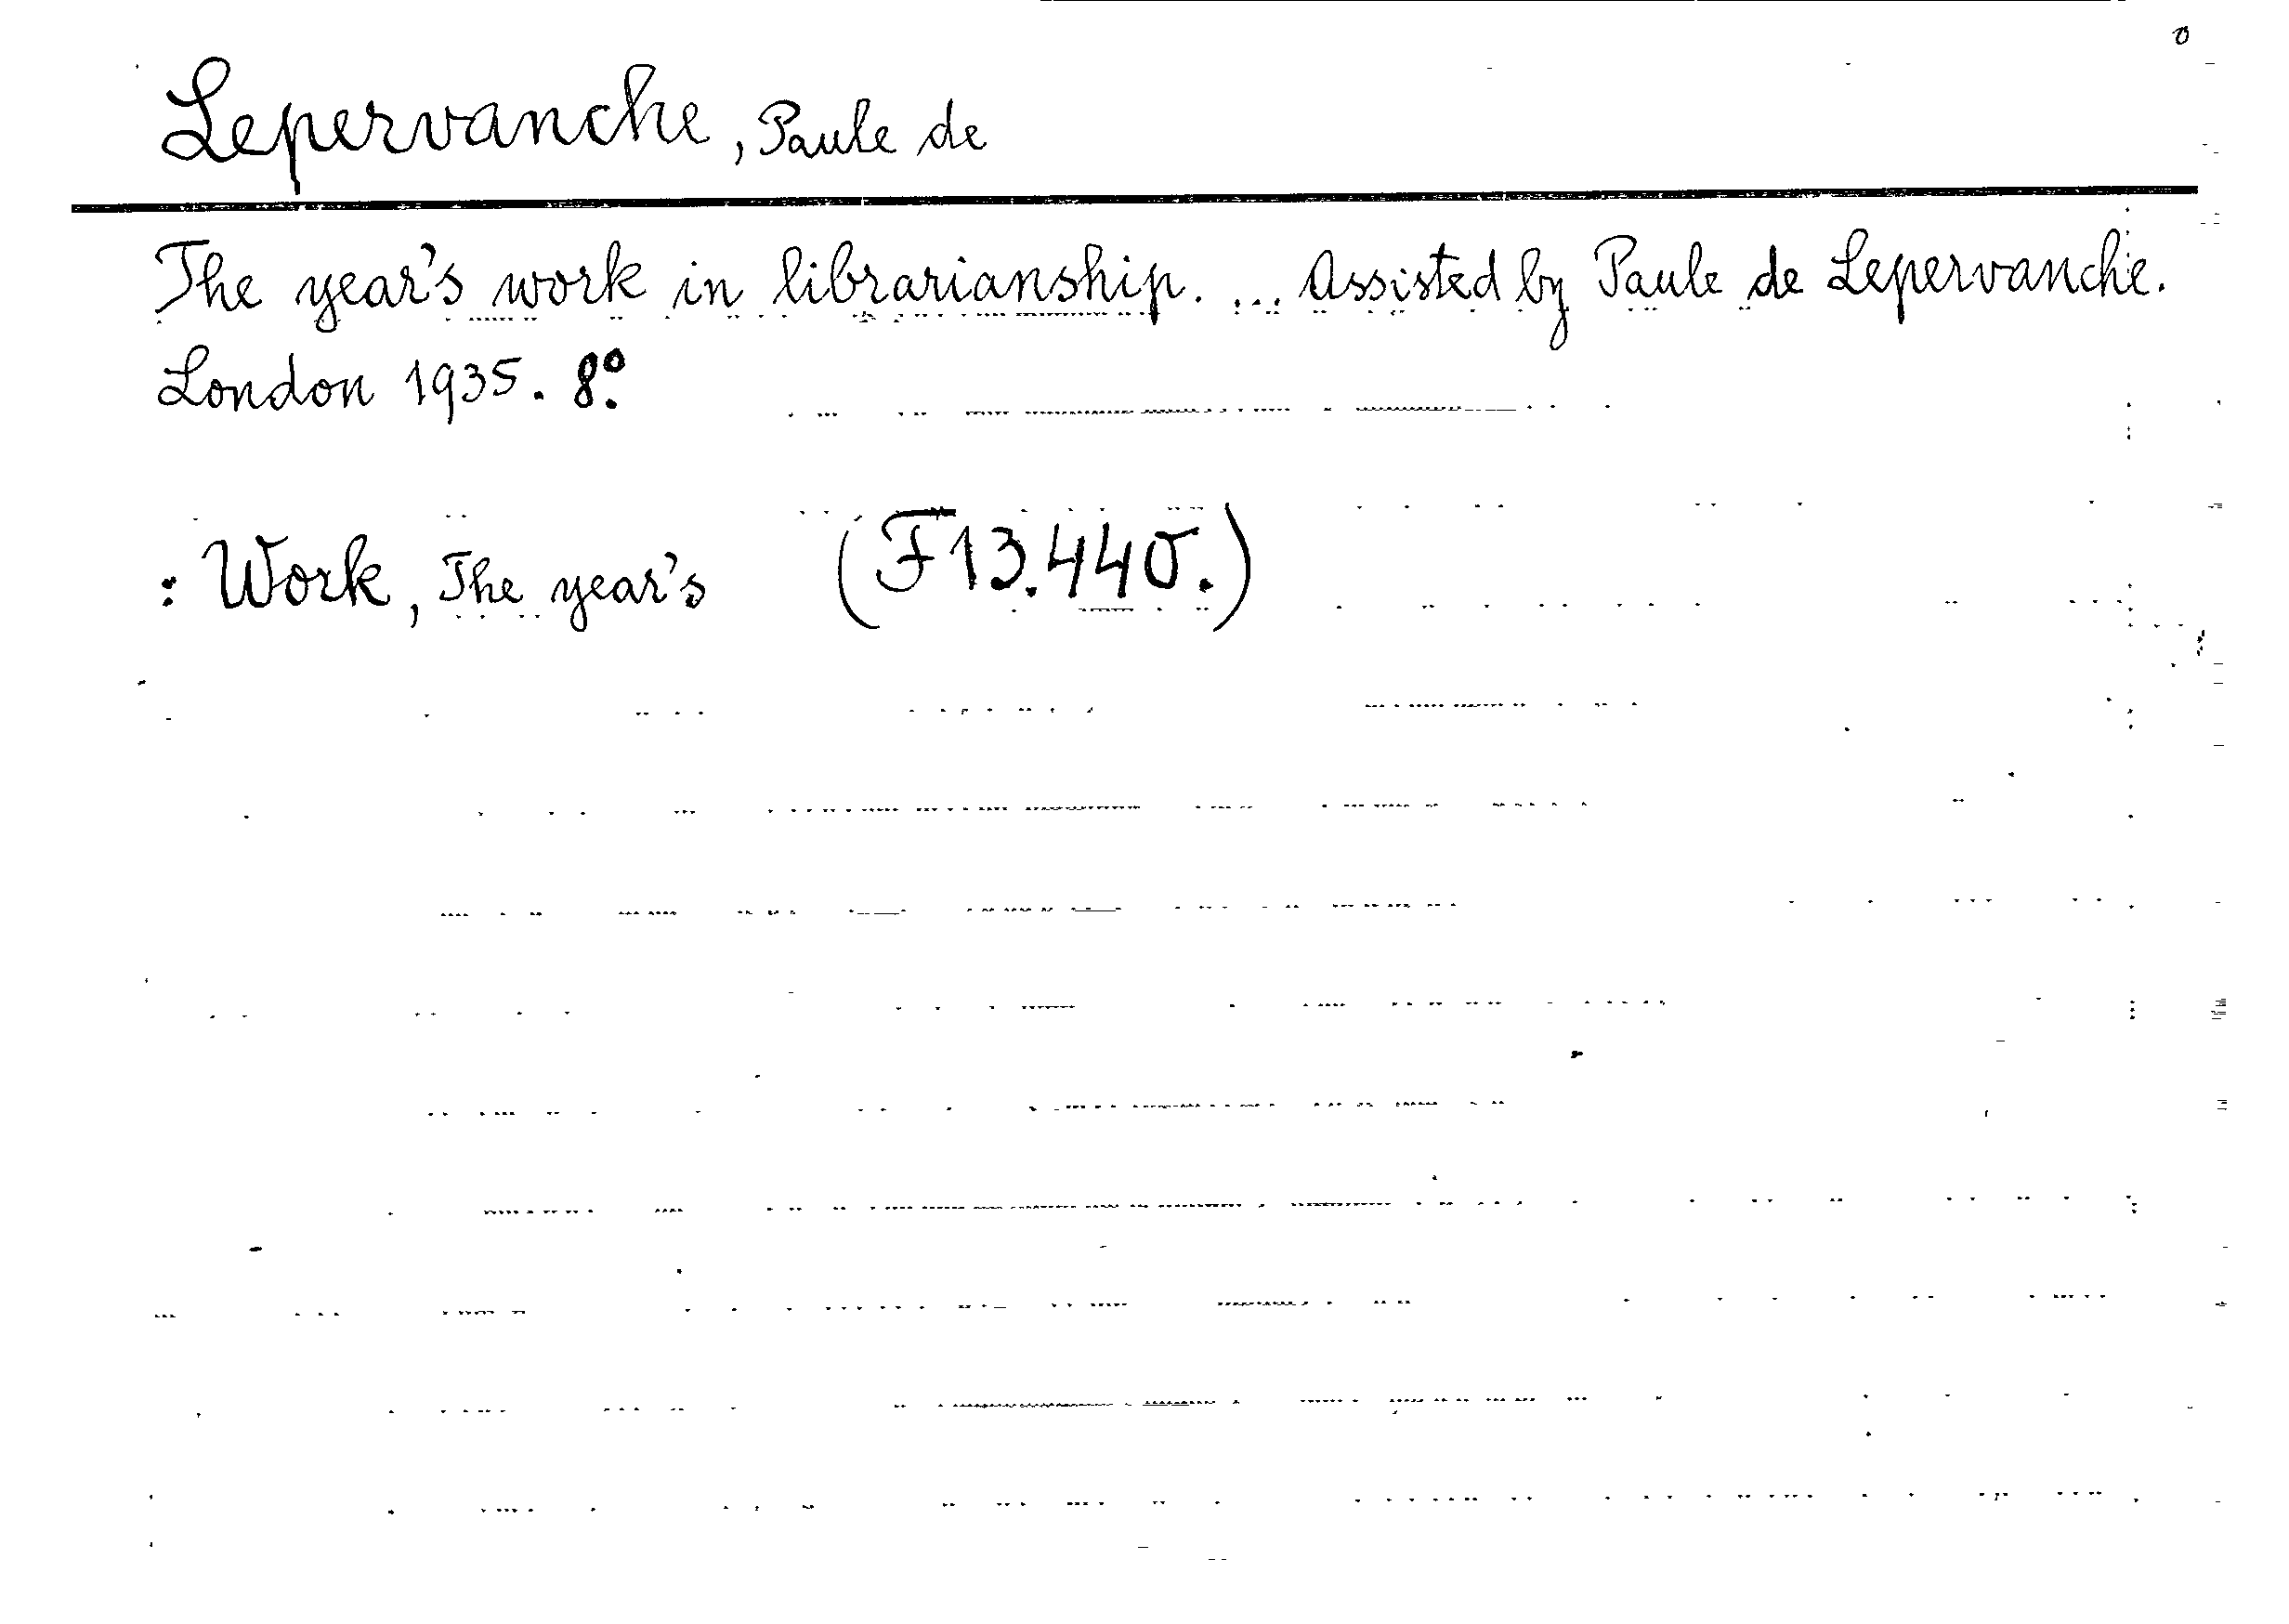 0
Lepervanche, Paule de
The year's work in librarianship. ... Assisted by Paule de Lepervanche.
London 1935. 8º.
: Work, The year's (F13.440.)